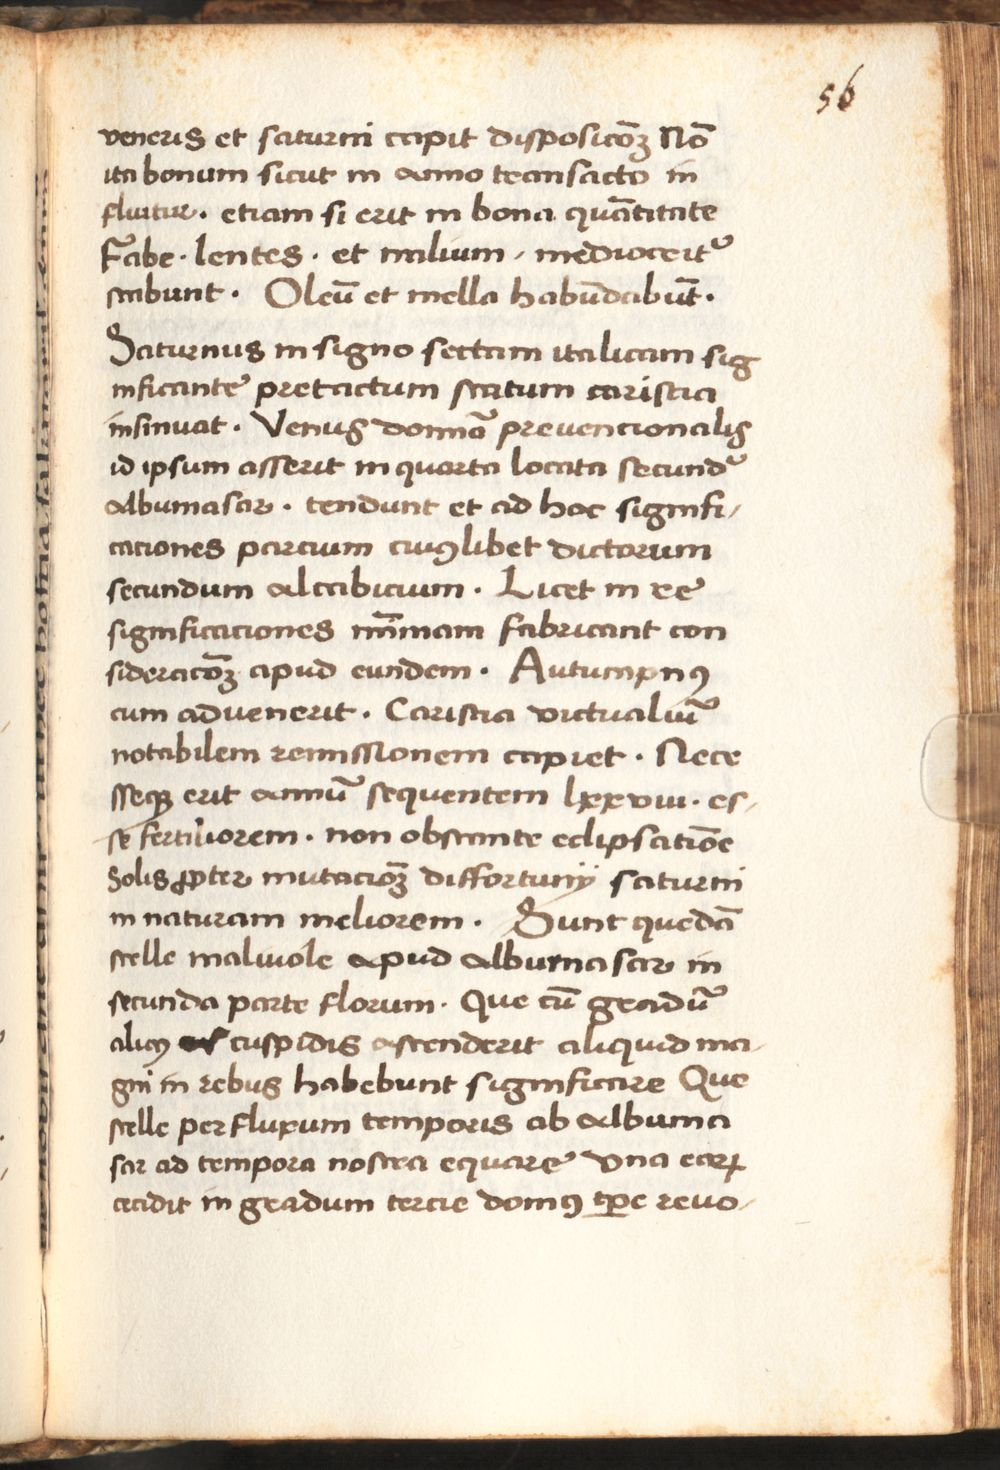 56
veneris et saturni capit disposicōꝫ Nō
ita bonum sicut in anno transacto in
fluitur. etiam si erit in bona quātitate
Fabe. lentes. et milium, mediocrit᷑
stabunt. Oleū et mella habūdabūt.
Saturnus in signo sectam italicam sig
nificante pretactum statum caristia
insinuat. Venus domīa prevencionalis
id ipsum asserit in quarta locata secund᷑
albumasar. tendunt et ad hoc signifi,
caciones parcium cuiꝰlibet dictorum
secundum alcabicium. Licet in re
significaciones mīmam fabricant con
sideracōꝫ apud eundem. Autumpnꝰ
cum advenerit. Caristia victualiū
notabilem remissionem capiet. Nece
sseqꝫ erit annū sequentem lxxviii. es,
se fertiliorem. non obstante eclipsatiōe
Solis ꝓpter mutacioꝫ diffortunij saturni
in naturam meliorem. Sunt quedā
stelle malivole apud albumasar in
secunda parte florum. Que cū gradū
alicꝰ cuspidis ascenderit aliquid ma,
gni in rebus habebunt significare Que
stelle per fluxum temporis ab albuma
sar ad tempora nostra equare una eaꝝ
cecidit in gradum tercie domꝰ tꝑe revo,